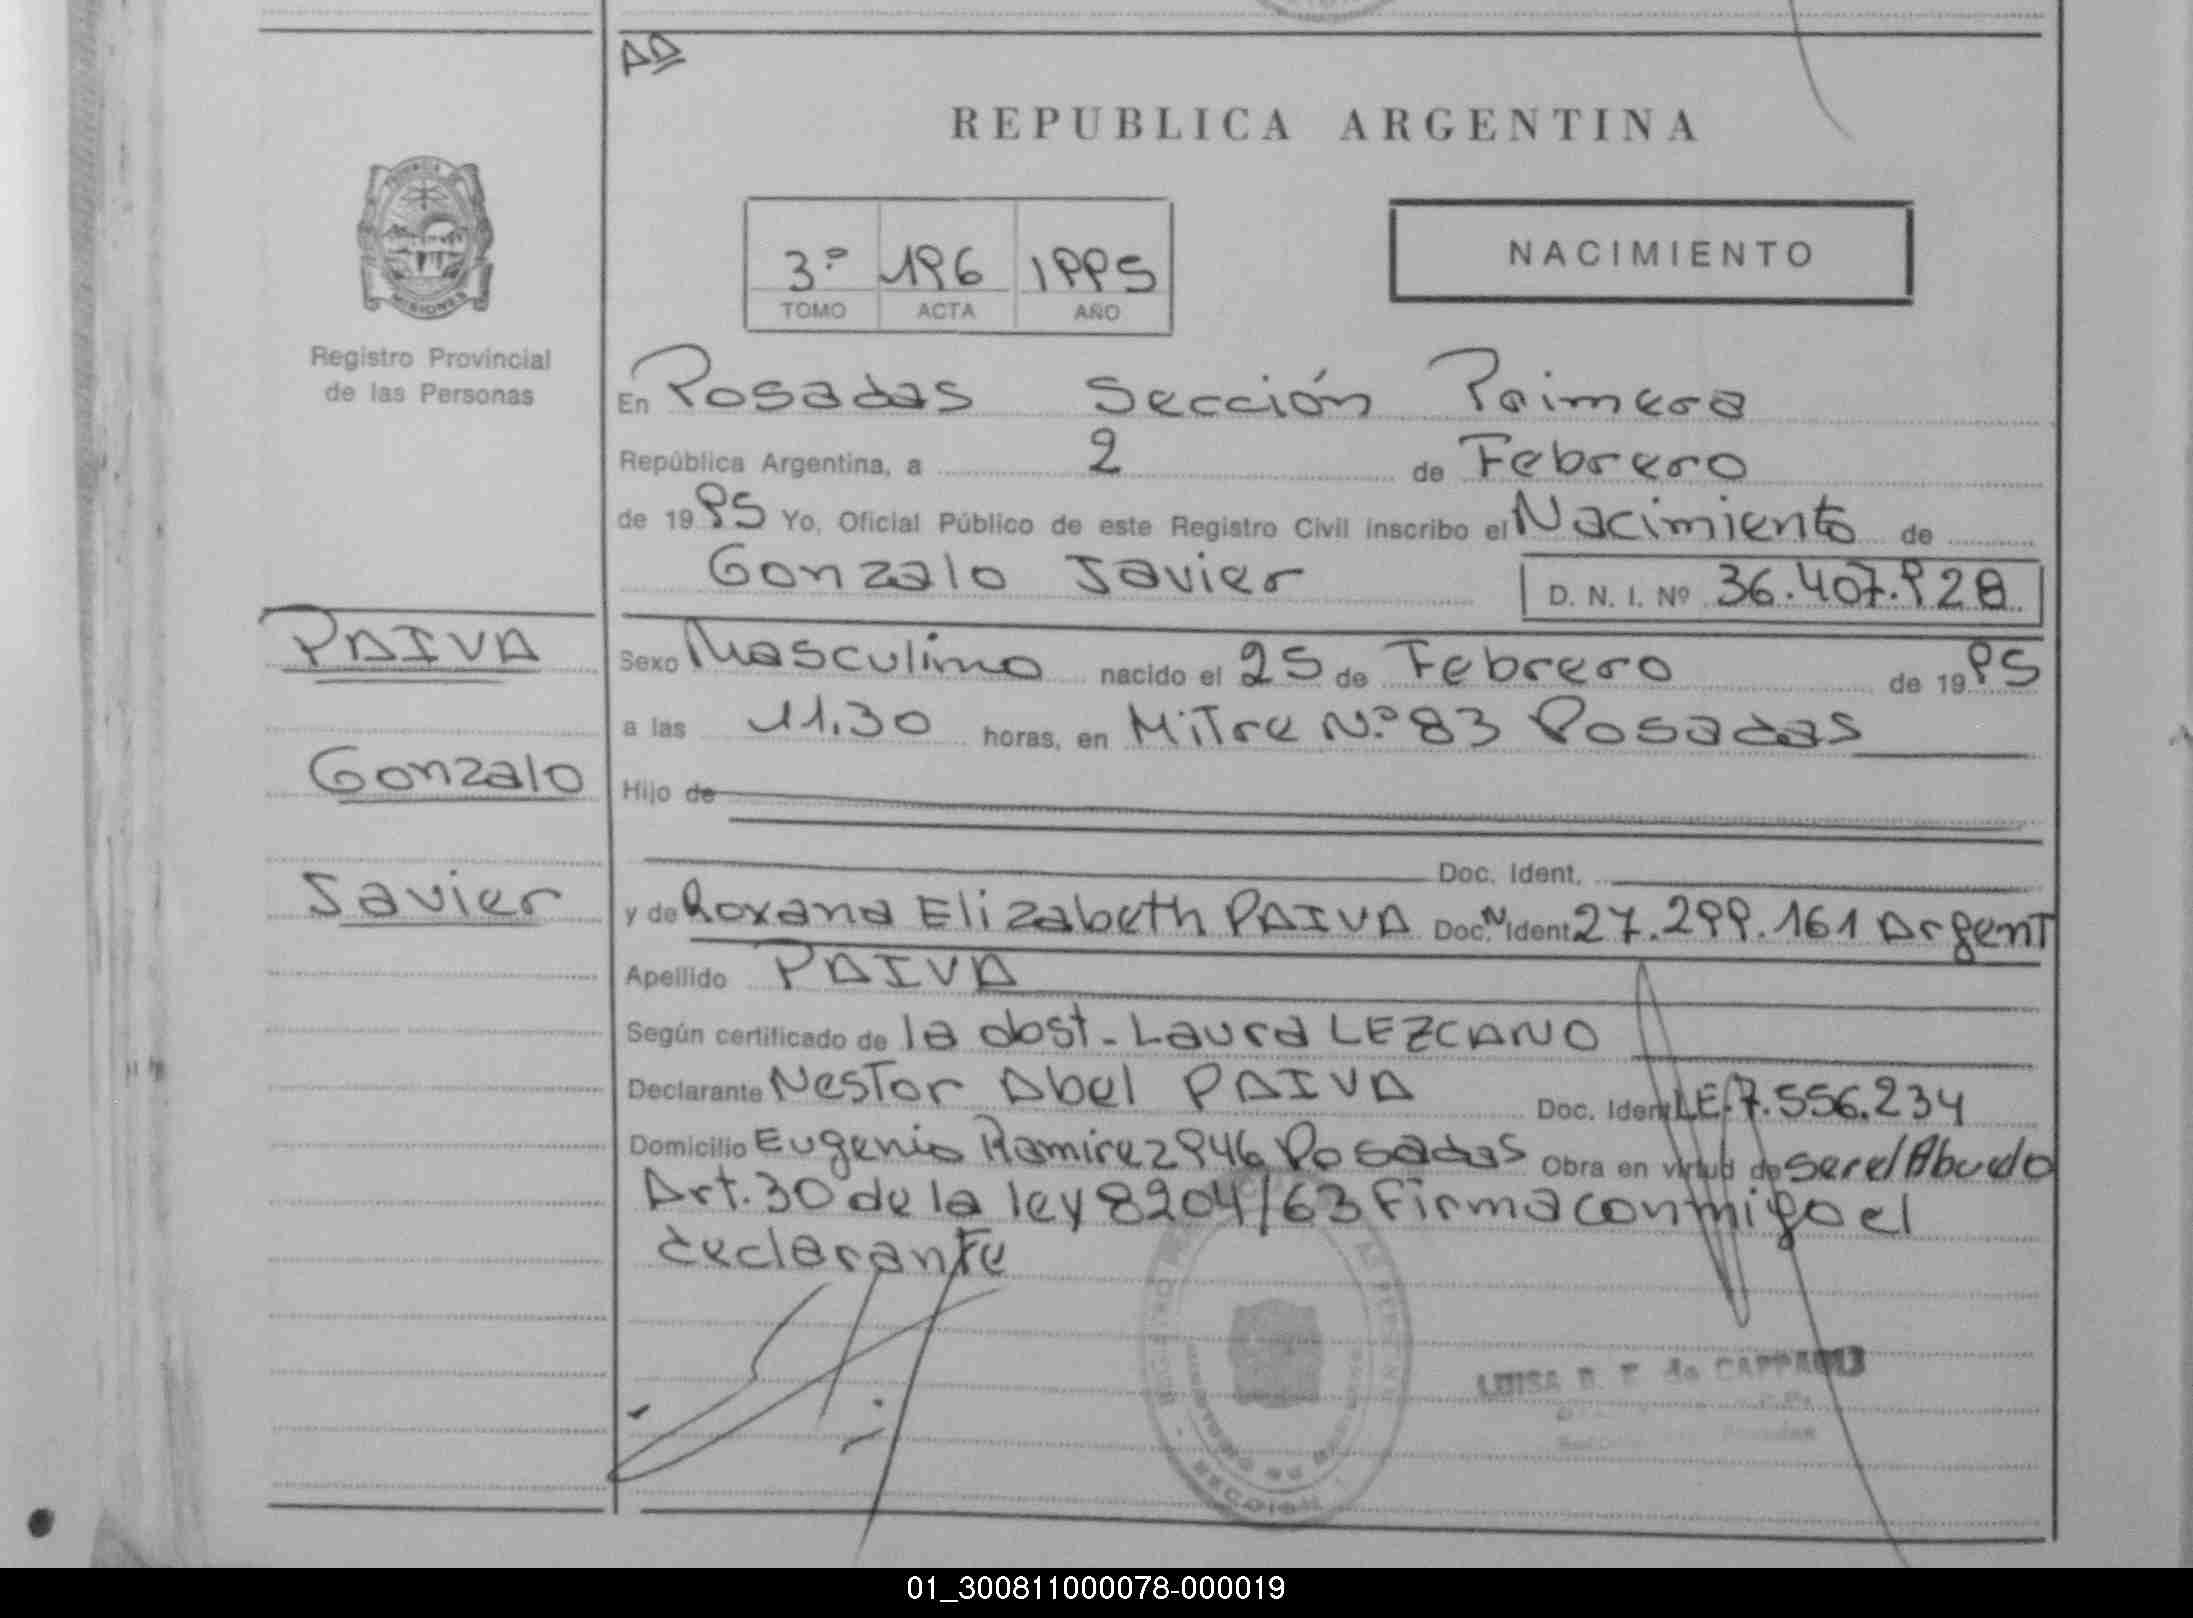 AD
REPUBLICA ARGENTINA
PROVINCIA DE
MISIONES
3º 196 1995
TOMO ACTA AÑO
NACIMIENTO
Registro Provincial
de las Personas
En Posadas Sección Primera
República Argentina, a 2 de Febrero
de 1995 Yo, Oficial Público de este Registro Civil inscribo el Nacimiento de
Gonzalo Javier D. N. I. Nº 36.407.928
PAIVA
Gonzalo
Javier
Sexo Masculino nacido el 25 de Febrero de 1995
a las 11.30 horas, en Mitre Nº 83 Posadas
Hijo de
Doc. Ident.
y de Roxana Elizabeth PAIVA Doc. N Ident 27.299.161 Argent
Apellido PAIVA
Según certificado de la obst. Laura LEZCANO
Declarante Nestor Abel PAIVA Doc. Ident LE.7.556.234
Domicilio Eugenio Ramirez 946 Posadas Obra en virtud de ser el Abuelo
Art. 30 de la ley 8204/63 firma conmigo el
declarante
SECCION 1
LUISA
de CAPPAGLI
01_300811000078-000019